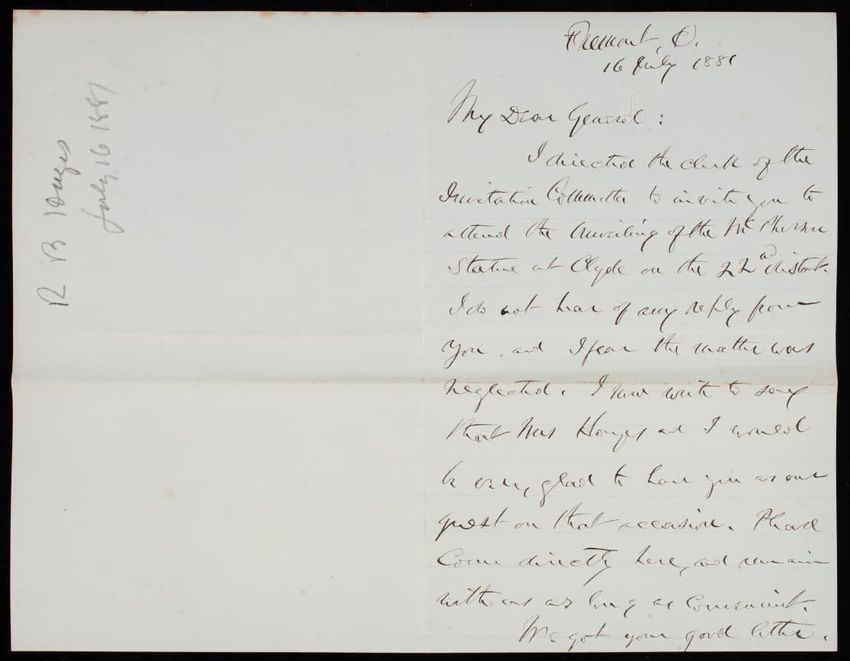 R B Hayes
July 16 1881
Fremont, O.
16 July 1881
My Dear General:
I directed the clerk of the
Invitation Committee to invite you to
attend the Unveiling of the McPherson
Statue at Clyde on the 22d instant.
I do not hear of any reply from
you, and I fear the matter was
neglected. I now write to say
that Mrs Hayes and I would
be very glad to have you as our
guest on that occasion. Please
Come directly here, and remain
with us as long as convenient.
We got your good letter.